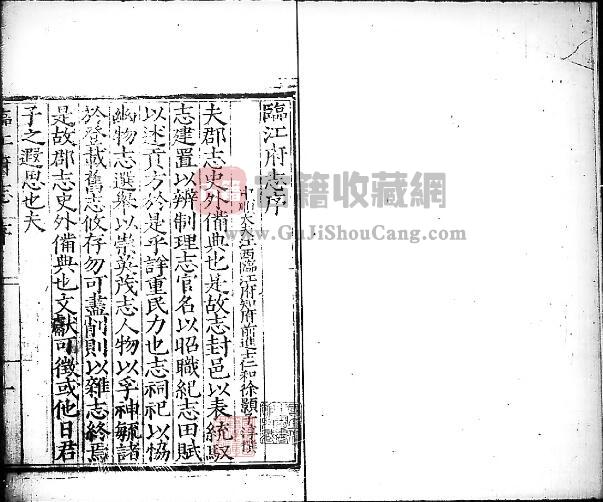 臨江府志序
中順大夫江西臨江府知府前進士仁和徐顥子淳撰
夫郡志史外備典也是故志封邑以表統馭
志建置以辨制理志官名以昭職紀志田賦
以述貢方於是乎詳重民力也志祠祀以恊
幽物志選舉以崇英茂志人物以孚神毓諸
於登載舊志攸存勿可盡削則以雜志終焉
是故郡志史外備典也文獻可徵或他日君
子之遐思也夫
臨江府志 序
古籍收藏網
www.GuJiShouCang.com